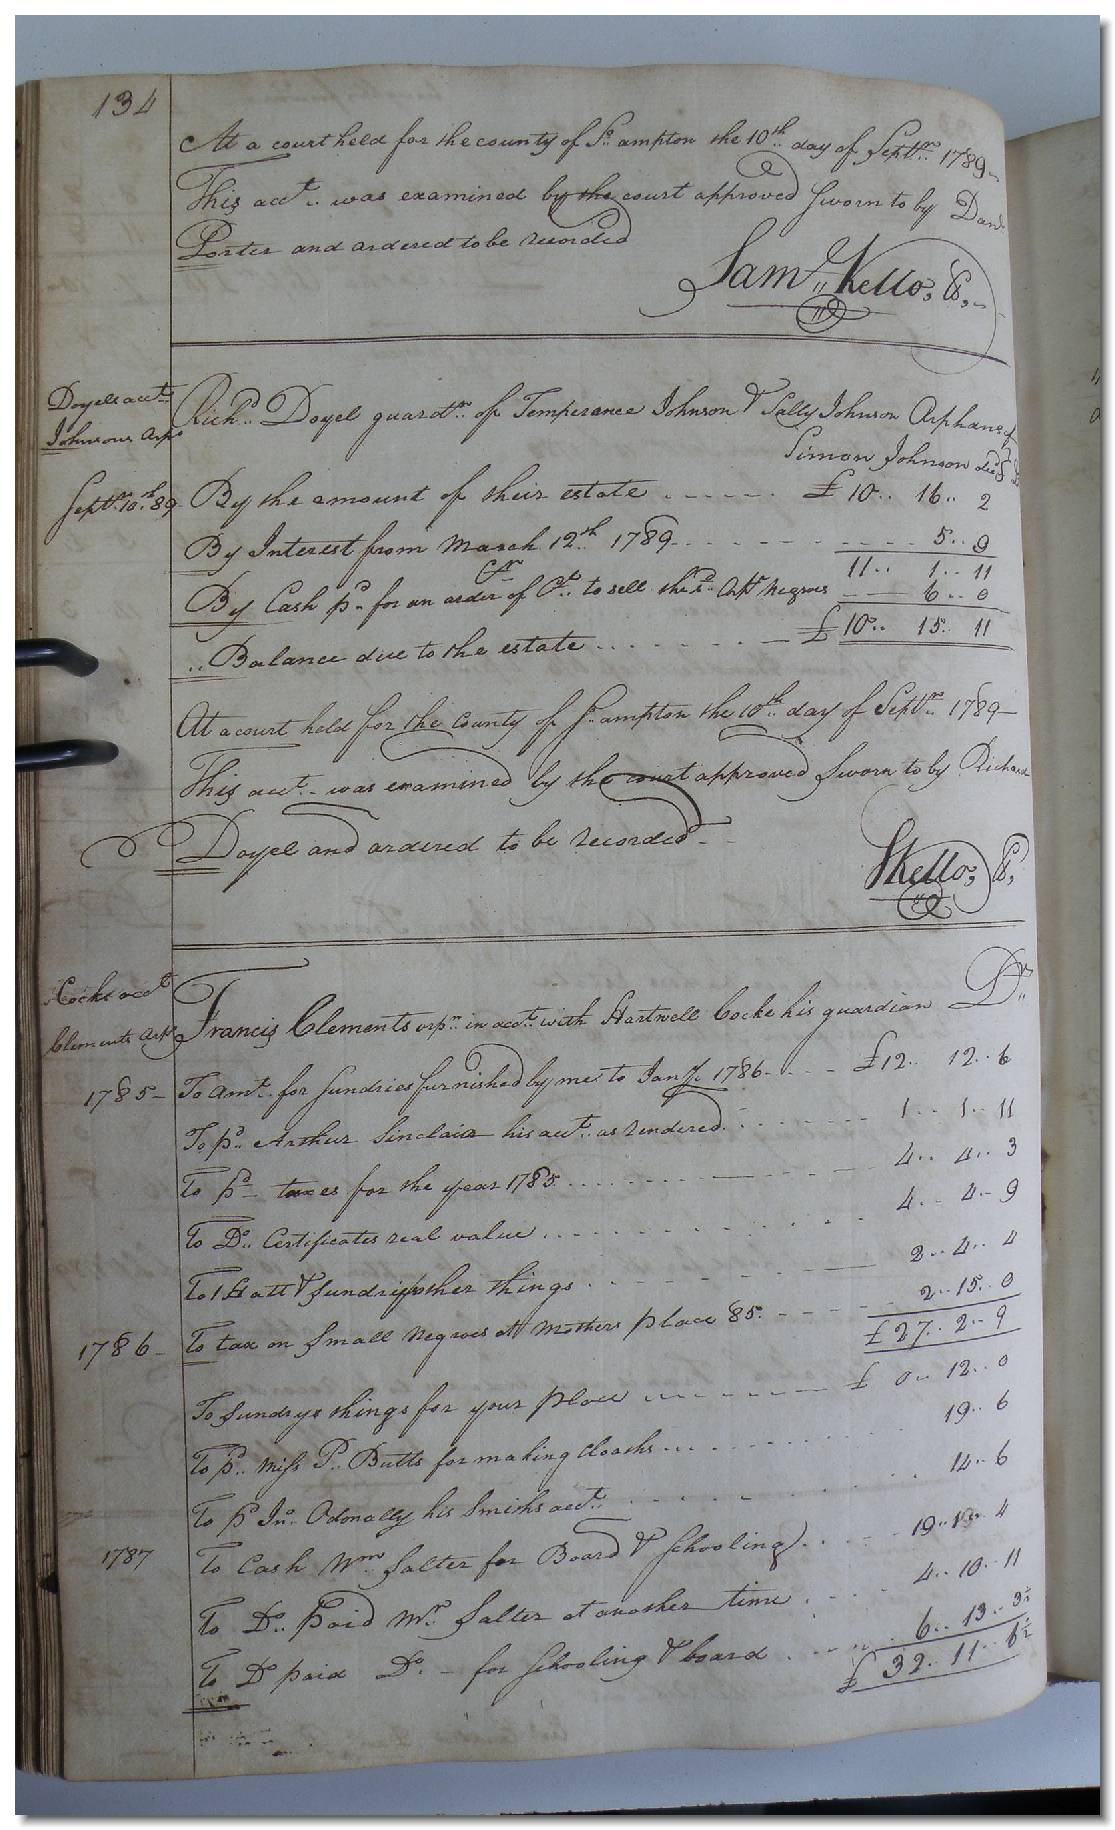 134
At a court held for the county of So. ampton the 10th day of Septr. 1789
This acct. was examined by the court approved sworn to by Danl.
Porter and ordered to be recorded
Saml. Kello, C,
Doyels acct.
Johnsons Arps
Richd. Doyel guardn. of Temperance Johnson & Sally Johnson Orphans of
Simon Johnson decd
Septr. 10th. 89
By the amount of their estate £ 10.. 16.. 2
By Interest from March 12th 1789 5.. 9
11.. 1.. 11
By Cash pd. for an order of Ct. to sell the sd. Negroes 6.. 0
Balance due to the estate £ 10.. 15. 11
At a court held for the County of So. ampton the 10th. day of Septr. 1789
This acct. was examined by the court approved sworn to by Richard
Doyel and ordered to be recorded
SKello, C,
Cocks acct
Clements
Francis Clements orpn. in acct. with Hartwell Cocke his guardian Dr.
1785
To amt. for sundries furnished by me to Jany. 1786 £12.. 12.. 6
To pd. Arthur Sinclair his acct. as rendered 1.. 1.. 11
To pd. taxes for the year 1785 4.. 4.. 3
To Do. Certificates real value 4.. 4.. 9
To 1 Hatt & sundry other things 2.. 4.. 4
1786
To tax on small Negroes at Mothers place 85. 2.. 15.. 0
£ 27.. 2.. 9
To sundrys things for your place £ 0.. 12.. 0
To pd. Miss P. Butts for making cloaths 19.. 6
To pd Jno. Odonally his Smiths acct. 14.. 6
1787
To Cash Wm Salter for Board & Schooling 19.. 4
To Do. paid Mr. Salter at another time 4.. 10.. 11
To Do paid Do. for schooling & board 6.. 13.. 3½
£ 32.. 11.. 6½